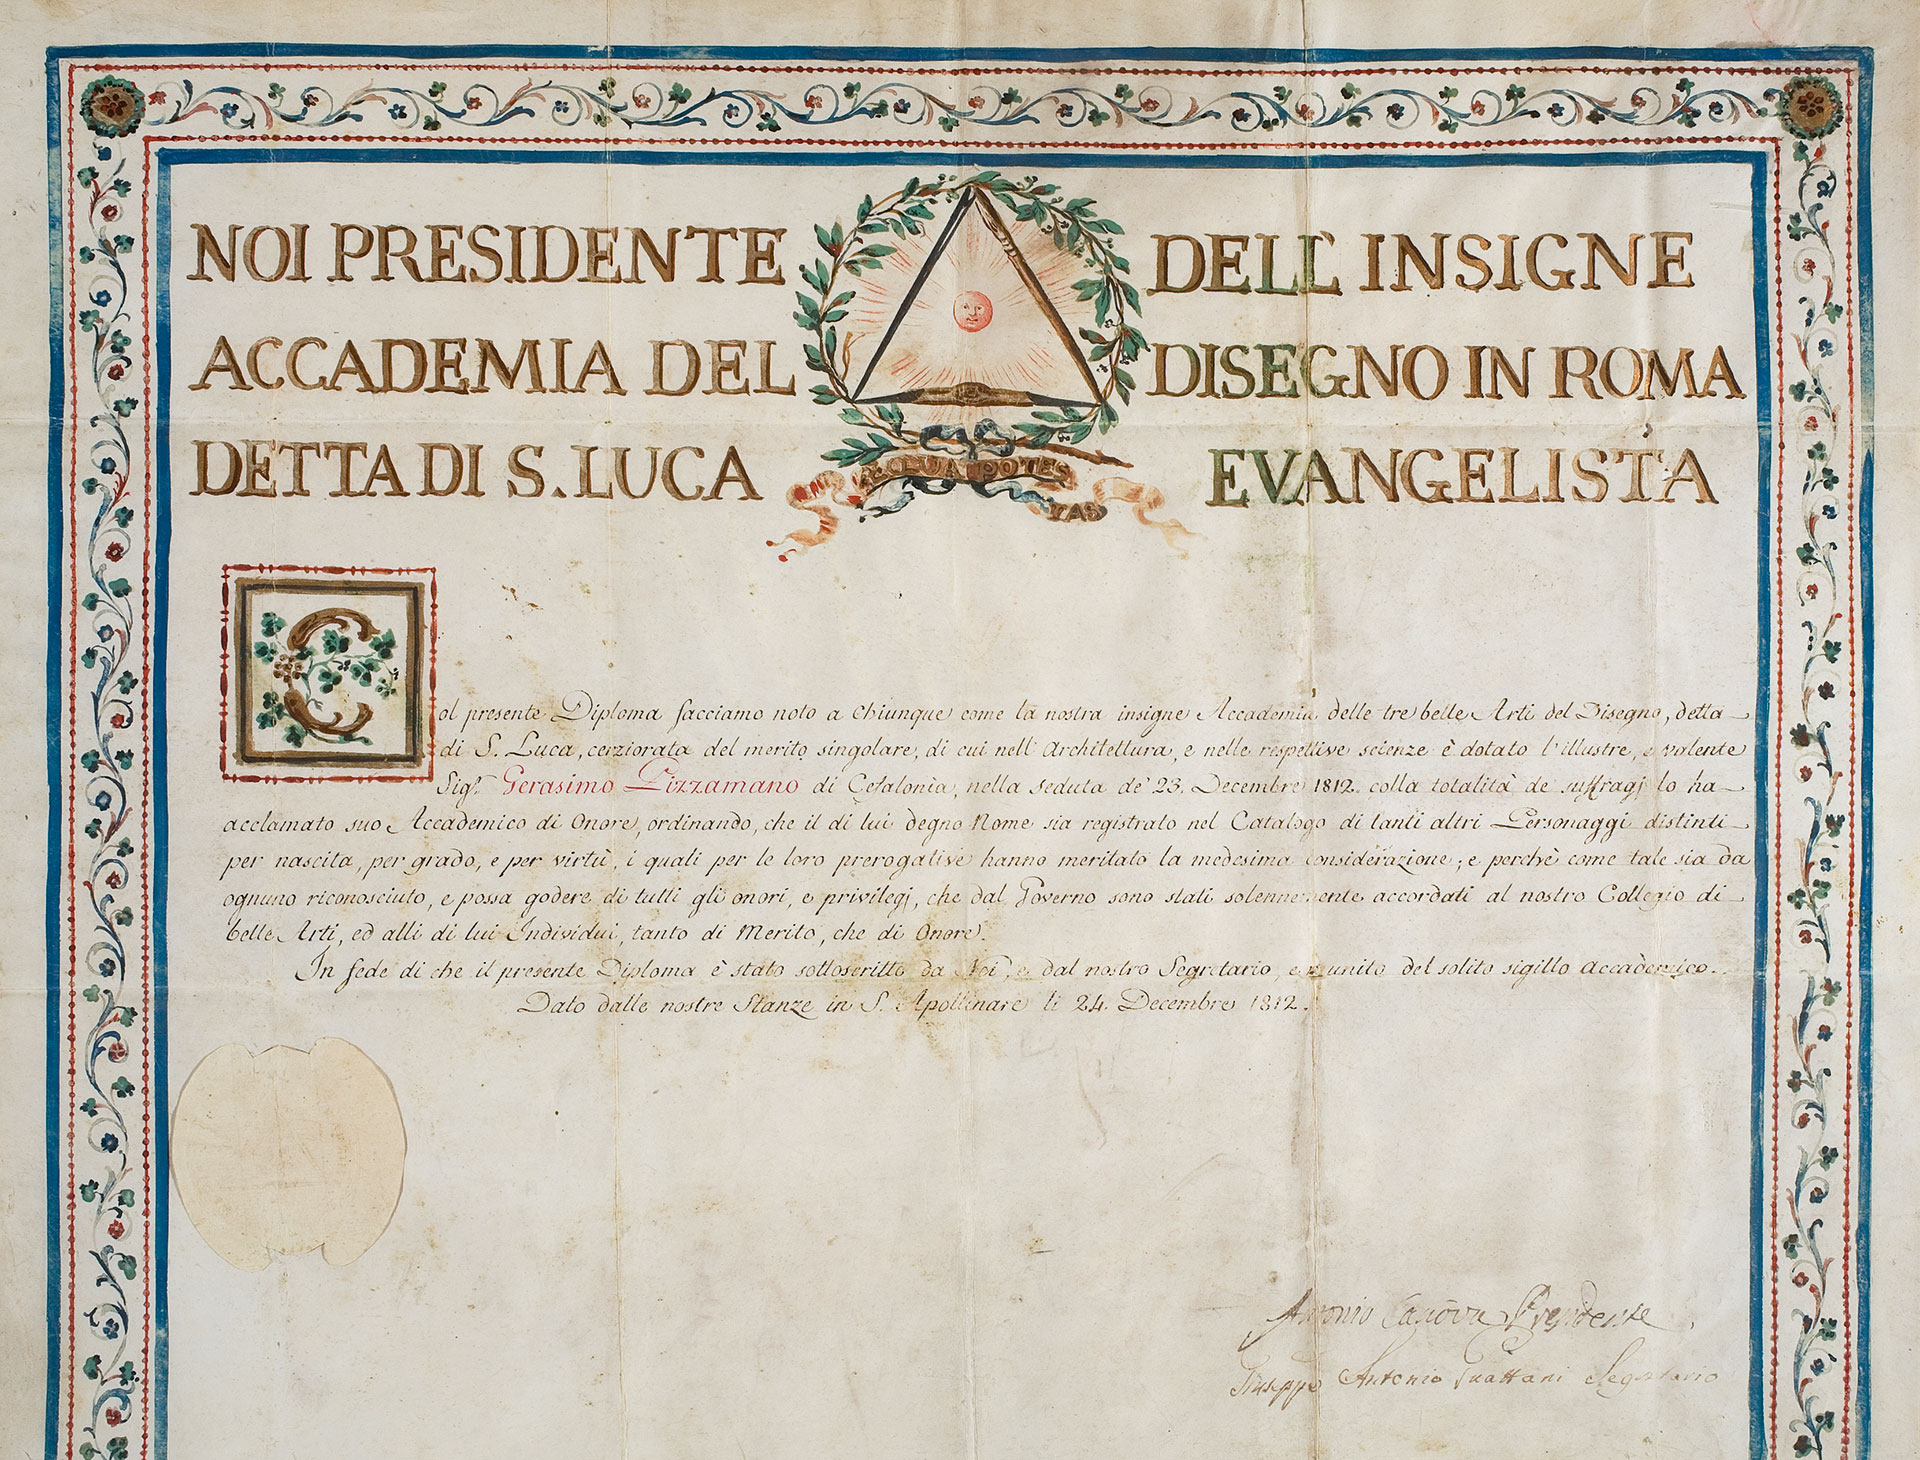 NOI PRESIDENTE DELL' INSIGNE
ACCADEMIA DEL DISEGNO IN ROMA
DETTA DI S. LUCA EVANGELISTA
ÆQUA POTES
TAS
Col presente Diploma facciamo noto a chiunque come la nostra insigne Accademia delle tre belle Arti del Disegno, detta
di S. Luca, cerziorata del merito singolare, di cui nell' Architettura, e nelle respettive scienze è dotato l'illustre, e valente
Sigr. Gerasimo Pizzamano di Cefalonìa, nella seduta de' 23. Decembre 1812. colla totalità de' suffragj lo ha
acclamato suo Accademico di Onore, ordinando, che il di lui degno Nome sia registrato nel Catalogo di tanti altri Personaggi distinti
per nascita, per grado, e per virtù, i quali per le loro prerogative hanno meritato la medesima considerazione; e perchè come tale sia da
ognuno riconosciuto, e possa godere di tutti gli onori, e privilegj, che dal Governo sono stati solennemente accordati al nostro Collegio di
belle Arti, ed alli di lui Individui, tanto di Merito, che di Onore.
In fede di che il presente Diploma è stato sottoscritto da Noi, e dal nostro Segretario, e munito del solito sigillo accademico.
Dato dalle nostre Stanze in S. Apollinare li 24. Decembre 1812.
Antonio Canova Presidente
Giuseppe Antonio Guattani Segretario